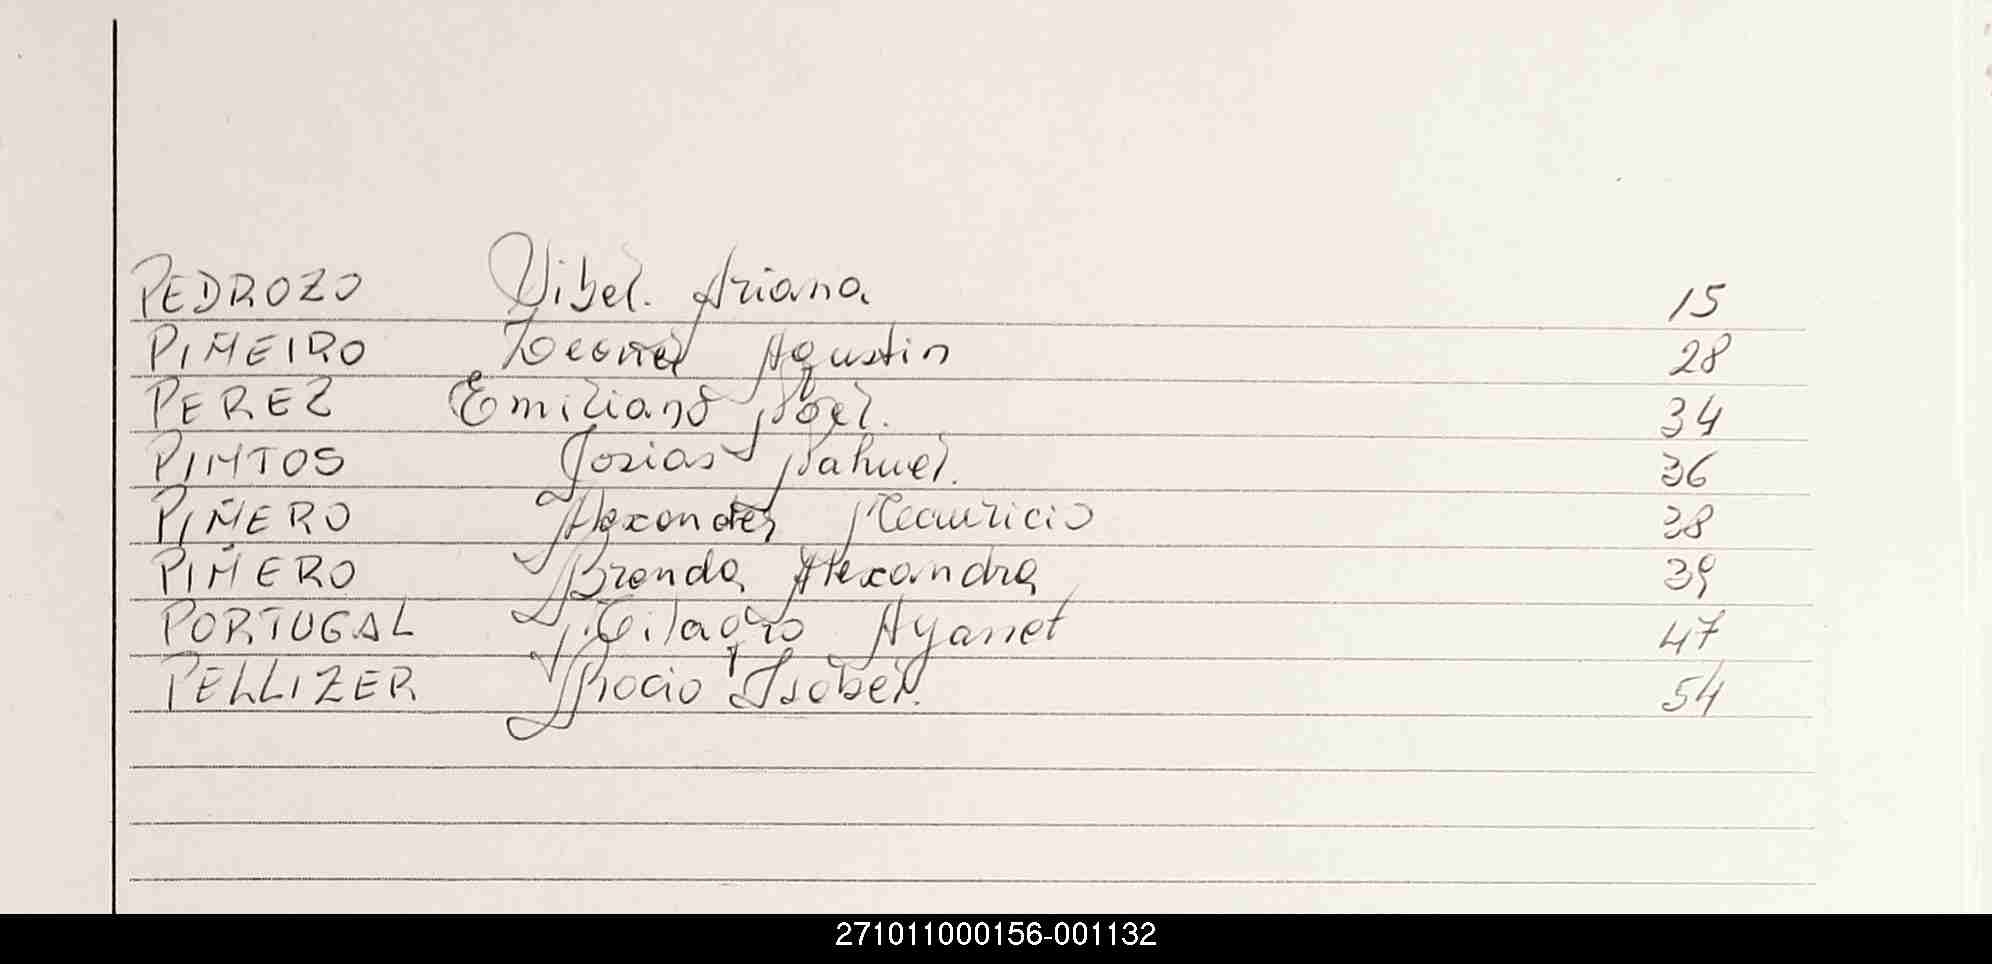 PEDROZO Vibel. Ariana 15
PIÑEIRO Leonel Agustin 28
PEREZ Emiliano Noel. 34
PINTOS Josias Nahuel. 36
PIÑERO Alexander Mauricio 38
PIÑERO Brenda Alexandra 39
PORTUGAL Milagro Ayanet 47
PELLIZER Rocio Isabel. 54
271011000156-001132